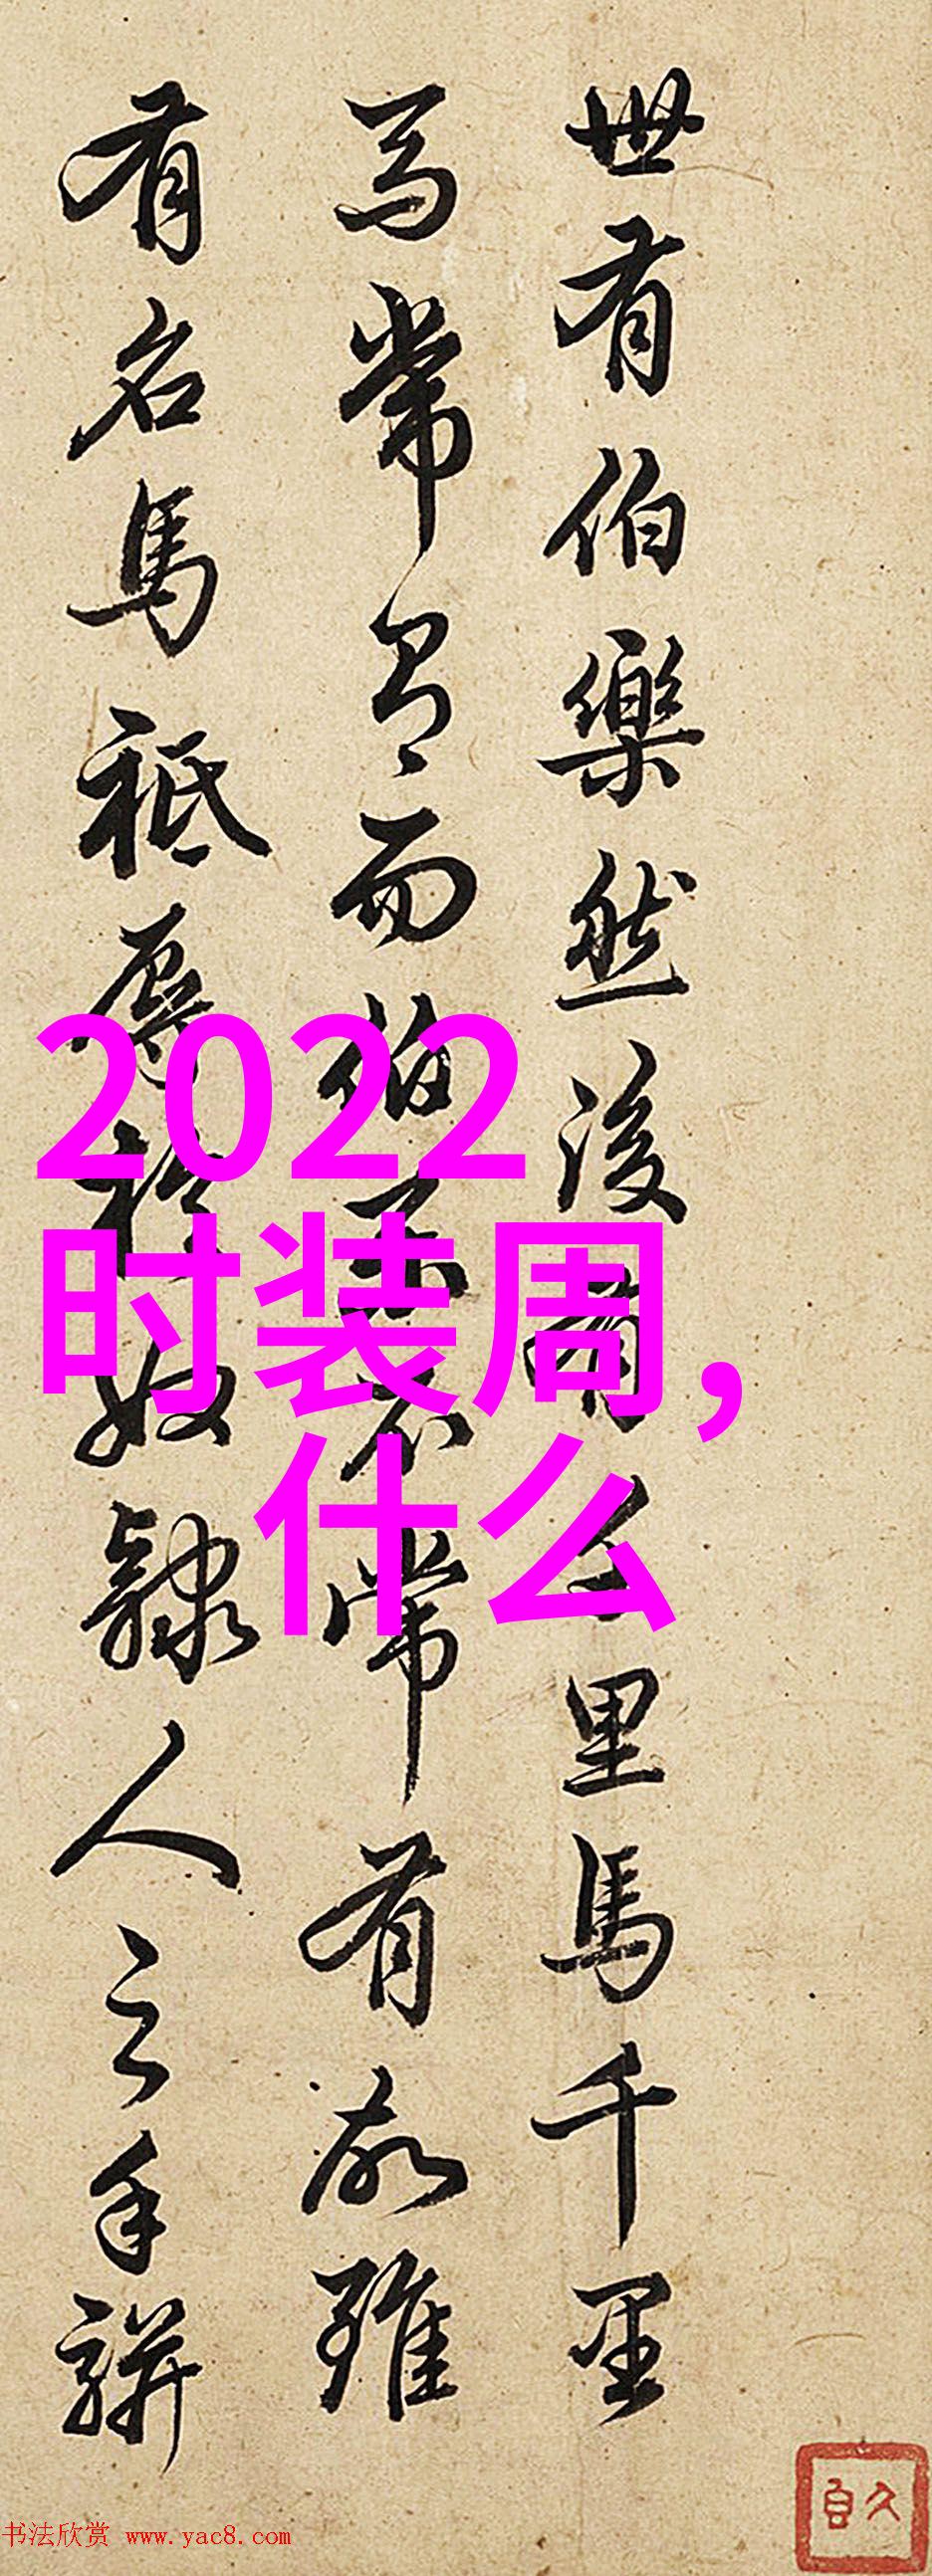 世有伯樂然後有千里馬千里
馬常有而伯樂不常有故雖
有名馬祗辱於奴隸人之手駢
2022
时装周,
什么
书法欣赏 www.yac8.com